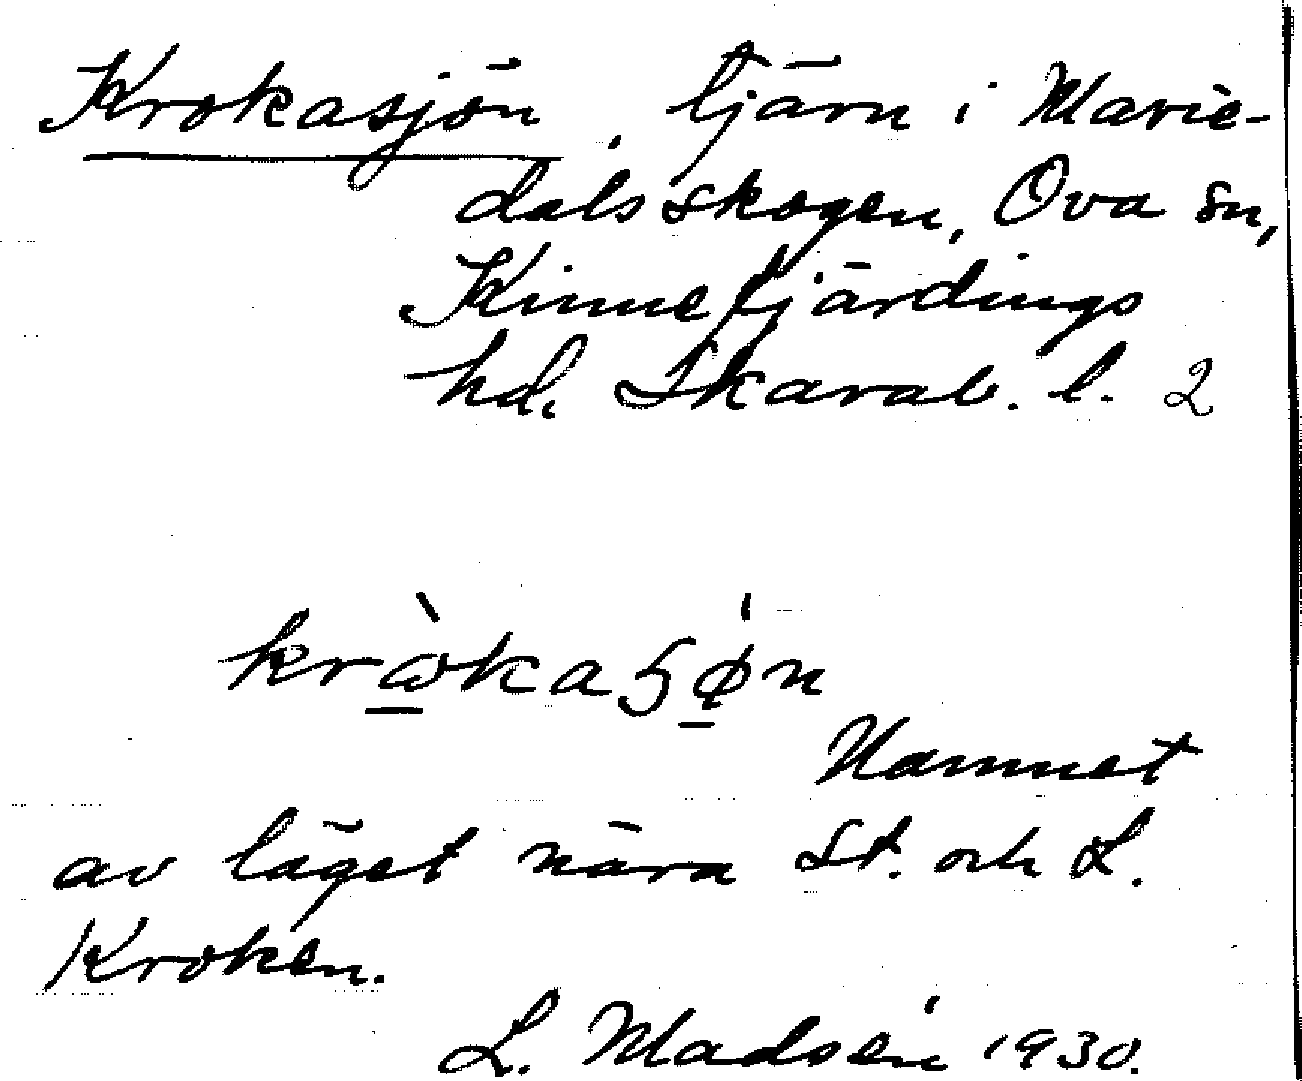 Krokasjön, tjärn i Marie-
dalsskogen, Ova sn,
Kinnefjärdings
hd. Skarab. l. 2
krὼkaʂǿn
Namnet
av läget nära St. och L.
Kroken.
L. Madsén 1930.